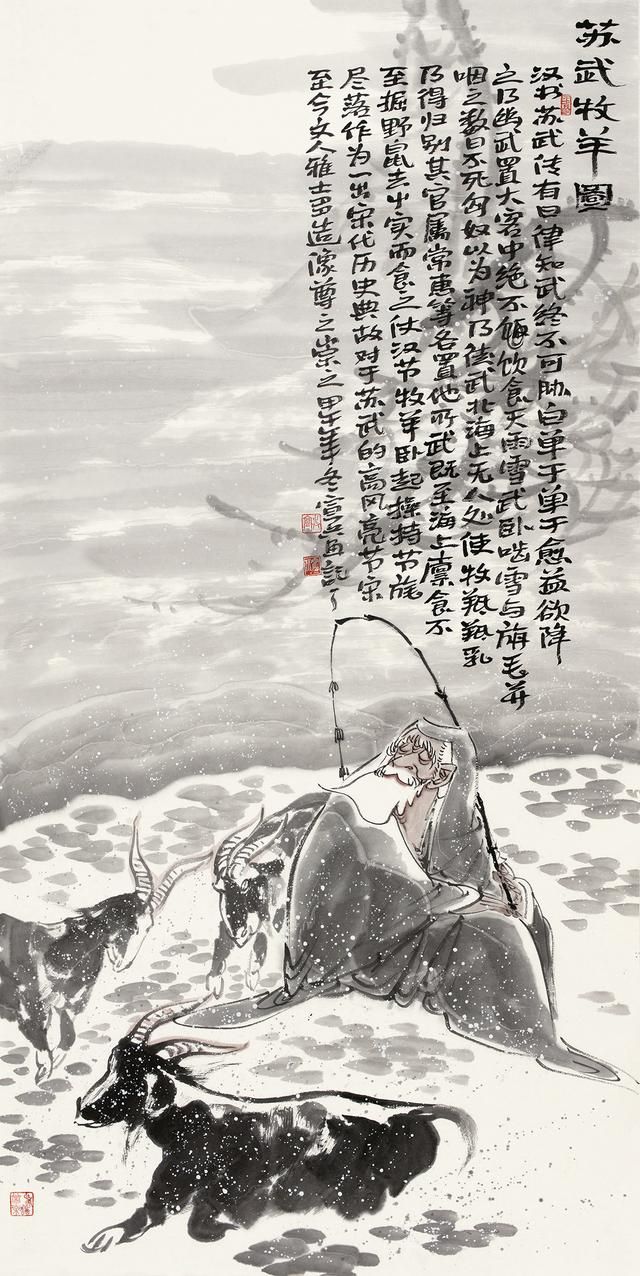 苏武牧羊圖
汉书苏武传有曰律知武终不可胁白单于单于愈益欲降
之乃幽武置大窖中绝不饮食天雨雪武卧啮雪与旃毛并
咽之数日不死匈奴以为神乃徙武北海上无人处使牧羝羝乳
乃得归别其官属常惠等各置他所武既至海上廪食不
至掘野鼠去屮实而食之仗汉节牧羊卧起操持节旄
尽落作为一出宋代历史典故对于苏武的高风亮节宋
至今文人雅士多造像尊之崇之甲午年冬宣兵画记了